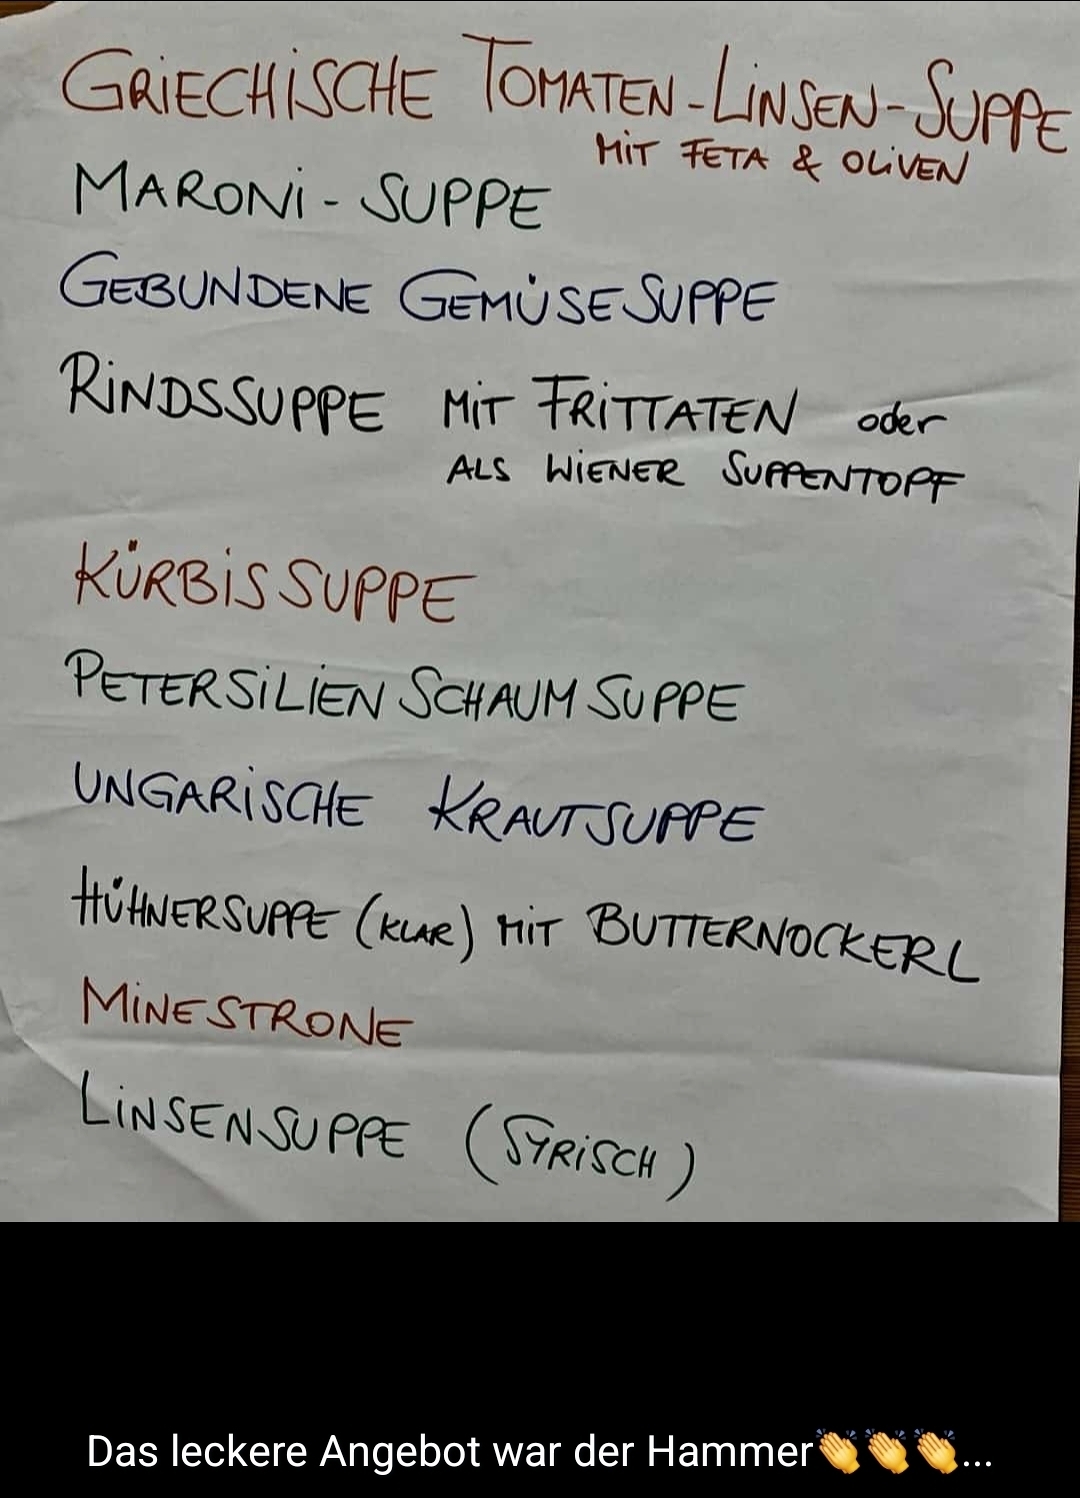 GRIECHISCHE TOMATEN-LINSEN-SUPPE
MIT FETA & OLIVEN
MARONI-SUPPE
GEBUNDENE GEMÜSESUPPE
RINDSSUPPE MIT FRITTATEN oder
ALS WIENER SUPPENTOPF
KÜRBISSUPPE
PETERSILIEN SCHAUM SUPPE
UNGARISCHE KRAUTSUPPE
HÜHNERSUPPE (KLAR) MIT BUTTERNOCKERL
MINESTRONE
LINSENSUPPE (SYRISCH)
Das leckere Angebot war der Hammer👏👏👏...